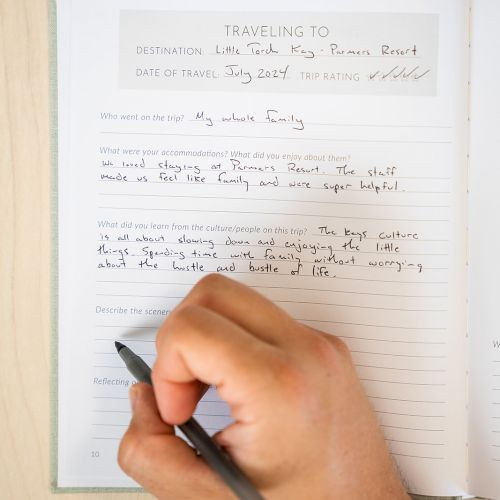 TRAVELING TO
DESTINATION: Little Torch Kay - Parmers Resort
DATE OF TRAVEL: July 2024 TRIP RATING ✓✓✓✓✓
Who went on the trip? My whole family
What were your accommodations? What did you enjoy about them?
We loved staying at Parmers Resort. The staff
made us feel like family and were super helpful.
What did you learn from the culture/people on this trip? The keys culture
is all about slowing down and enjoying the little
things. Spending time with family without worrying
about the hustle and bustle of life.
Describe the
Reflecting
10
W